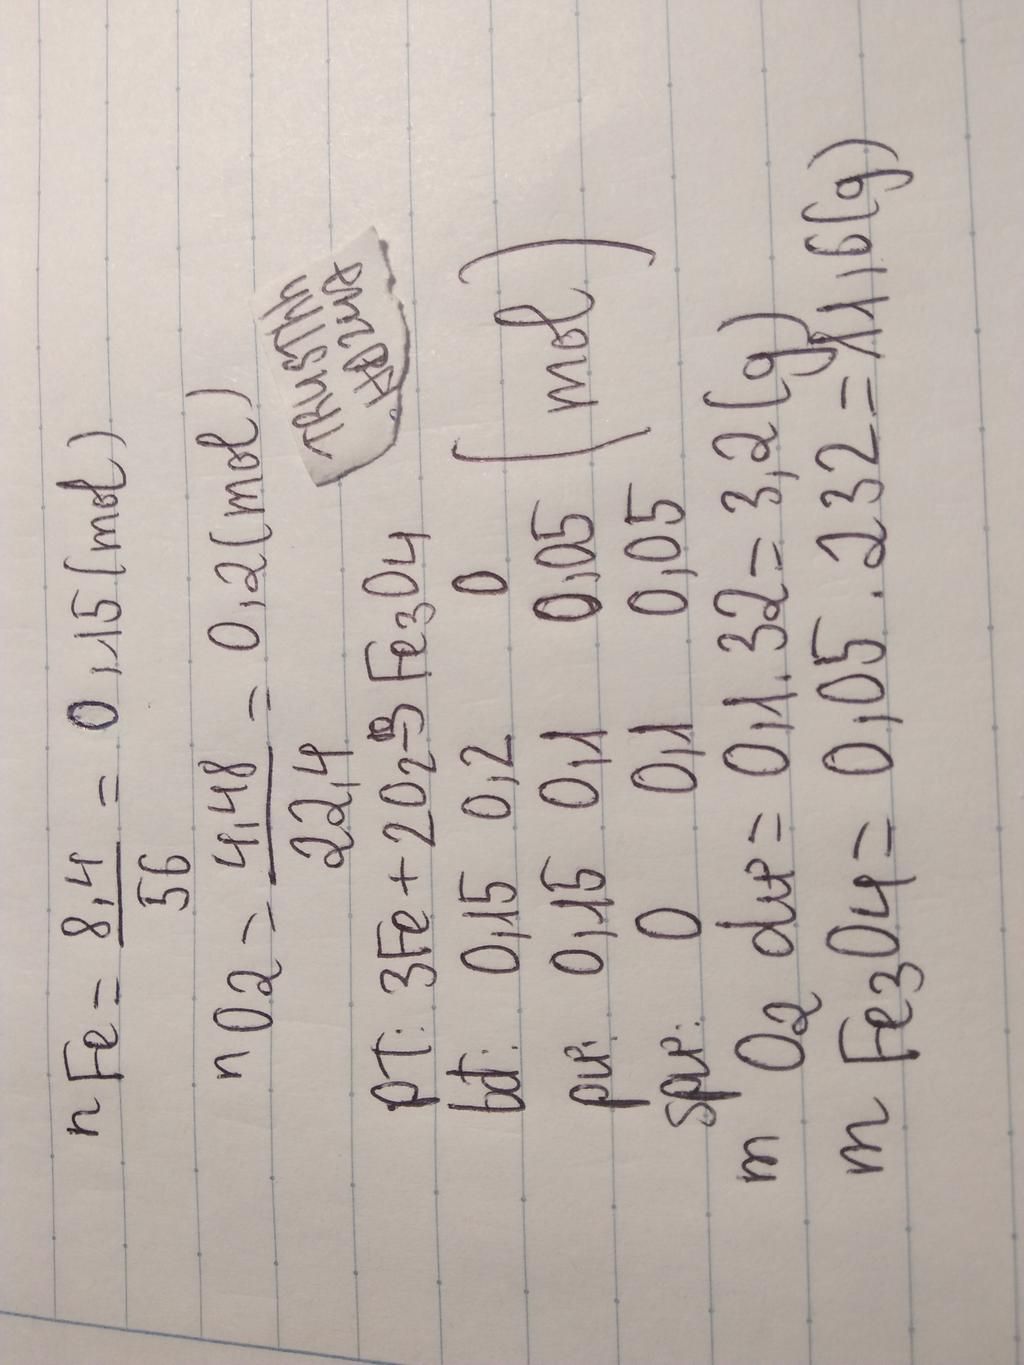 nFe = 8,4/56 = 0,15(mol)
nO2 = 4,48/22,4 = 0,2(mol)
TRUSTHh
HOZMA
PT: 3Fe + 2O2 → Fe3O4
bđ: 0,15 0,2 0
pư: 0,15 0,1 0,05 (mol)
spư: 0 0,1 0,05
m O2 dư = 0,1.32 = 3,2(g)
m Fe3O4 = 0,05.232 = 11,6(g)